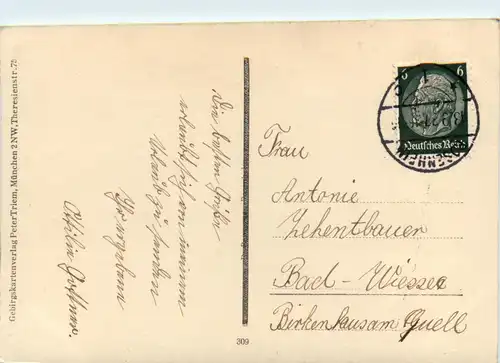 Gebirgskartenverlag Peter Triem, München 2 NW, Theresienstr. 75
Die besten Grüße
erlaubt sich von meinem
Urlaub zu senden
Ihr ergebene
309
6 6
Deutsches Reich
Frau
Antonie
Zehentbauer
Bad-Wiessee
Birkenhaus am Quell